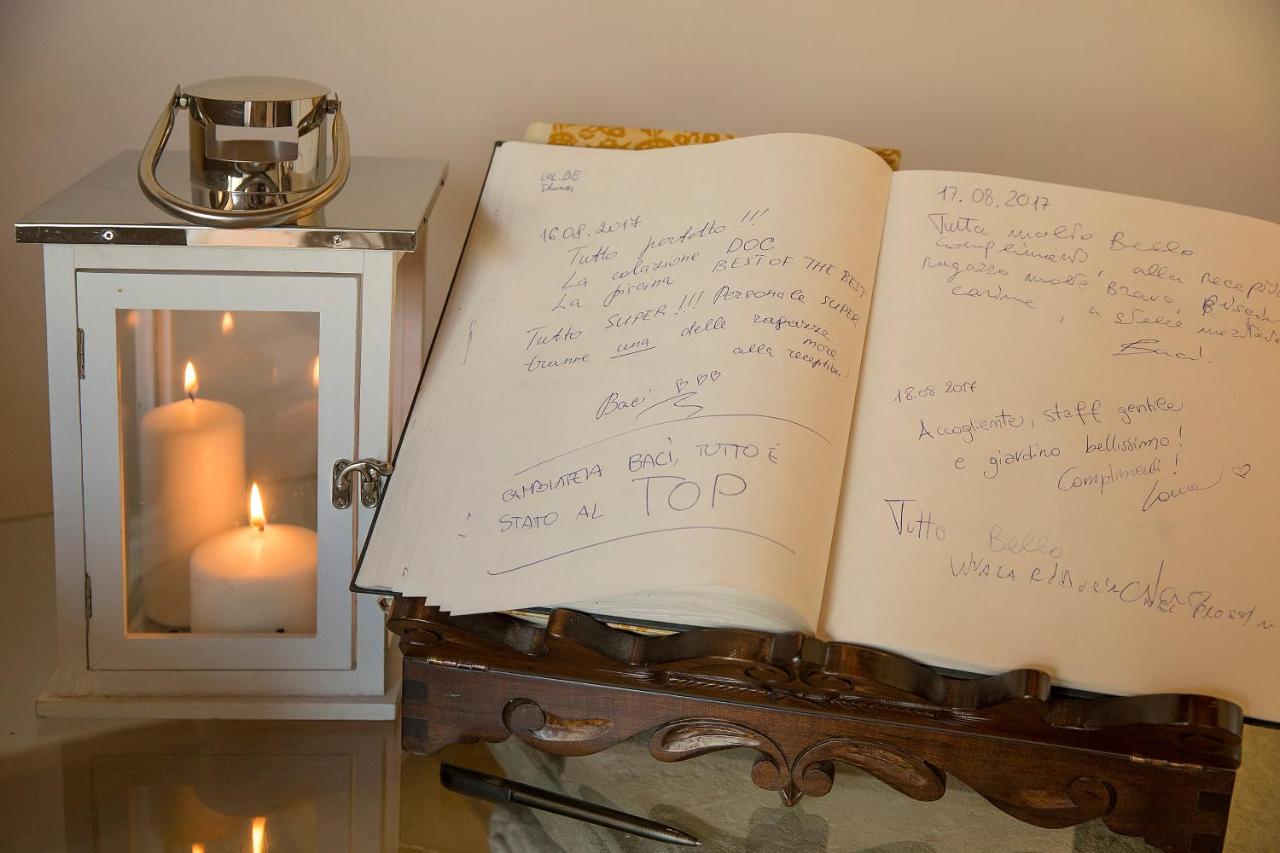 16.08.2017
Tutto perfetto !!!
La colazione DOC
La piscina BEST OF THE BEST
Tutto SUPER!!! Personale SUPER
tranne una delle ragazze more
alla reception!
Baci
BACI, TUTTO È
STATO AL TOP
17.08.2017
Tutto molto Bello
alla reception
ragazzo molto Bravo,
carine
Baci!
18.08.2017
Accogliente, staff gentile
e giardino bellissimo!
Complimenti!
Tutto Bello
VIVA LA